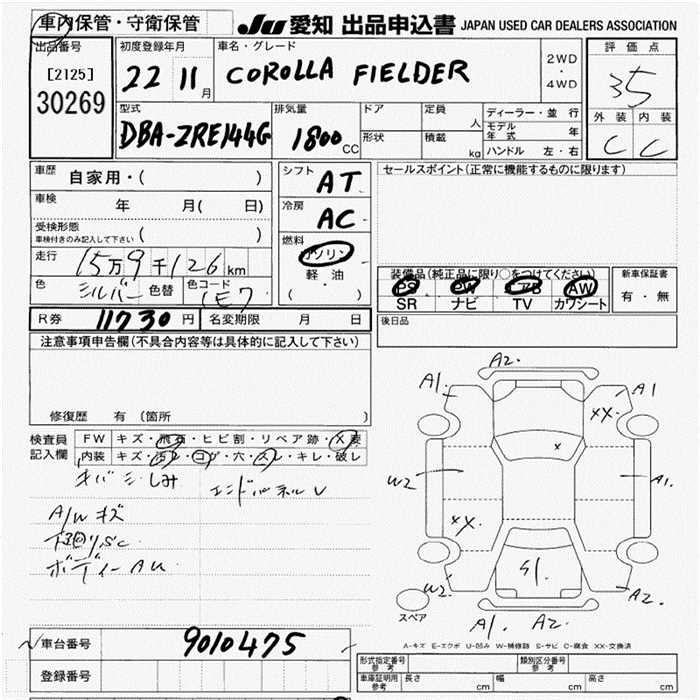 車内保管・守衛保管 JU 愛知 出品申込書 JAPAN USED CAR DEALERS ASSOCIATION
出品番号 初度登録年月 車名・グレード 評価点
[2125] 22 11月 COROLLA FIELDER 2WD・4WD 35
30269
型式 排気量 ドア 定員 人 ディーラー・並行 外装 内装
DBA-ZRE144G 1800 CC 形状 積載 kg モデル年式 年 C C
ハンドル 左・右
車歴 自家用・( ) シフト AT セールスポイント(正常に機能するものに限ります)
車検 年 月( 日) 冷房 AC
受検形態 ( )
車検付きのみ記入して下さい
燃料 ガソリン
走行 15万9千126km 軽油
装備品(純正品に限り○をつけてください) 新車保証書
色 シルバー 色替 色コード 1E7 ( ・ )
PS PW エアB AW 有・無
SR ナビ TV カワシート
R券 11730円 名変期限 月 日 後日品
注意事項申告欄(不具合内容等は具体的に記入して下さい)
修復歴 有(箇所 )
A2. A1. A1 XX.
検査員記入欄 FW キズ・飛石・ヒビ割・リペア跡・X要
内装 キズ・汚レ・コゲ・穴・スレ・キレ・破レ
X
キバミ・しみ エンドパネルU
W2 A1.
A/W キズ
XX.
下回り,SC
ボディーAU
S1.
W2 A2.
スペア
A1. A2.
A-キズ E-エクボ U-凹み W-補修跡 S-サビ C-腐食 XX-交換済
車台番号 9010475
登録番号
形式指定番号 参考 類別区分番号 参考
車庫証明用 参考 長さ cm 幅 cm 高さ cm